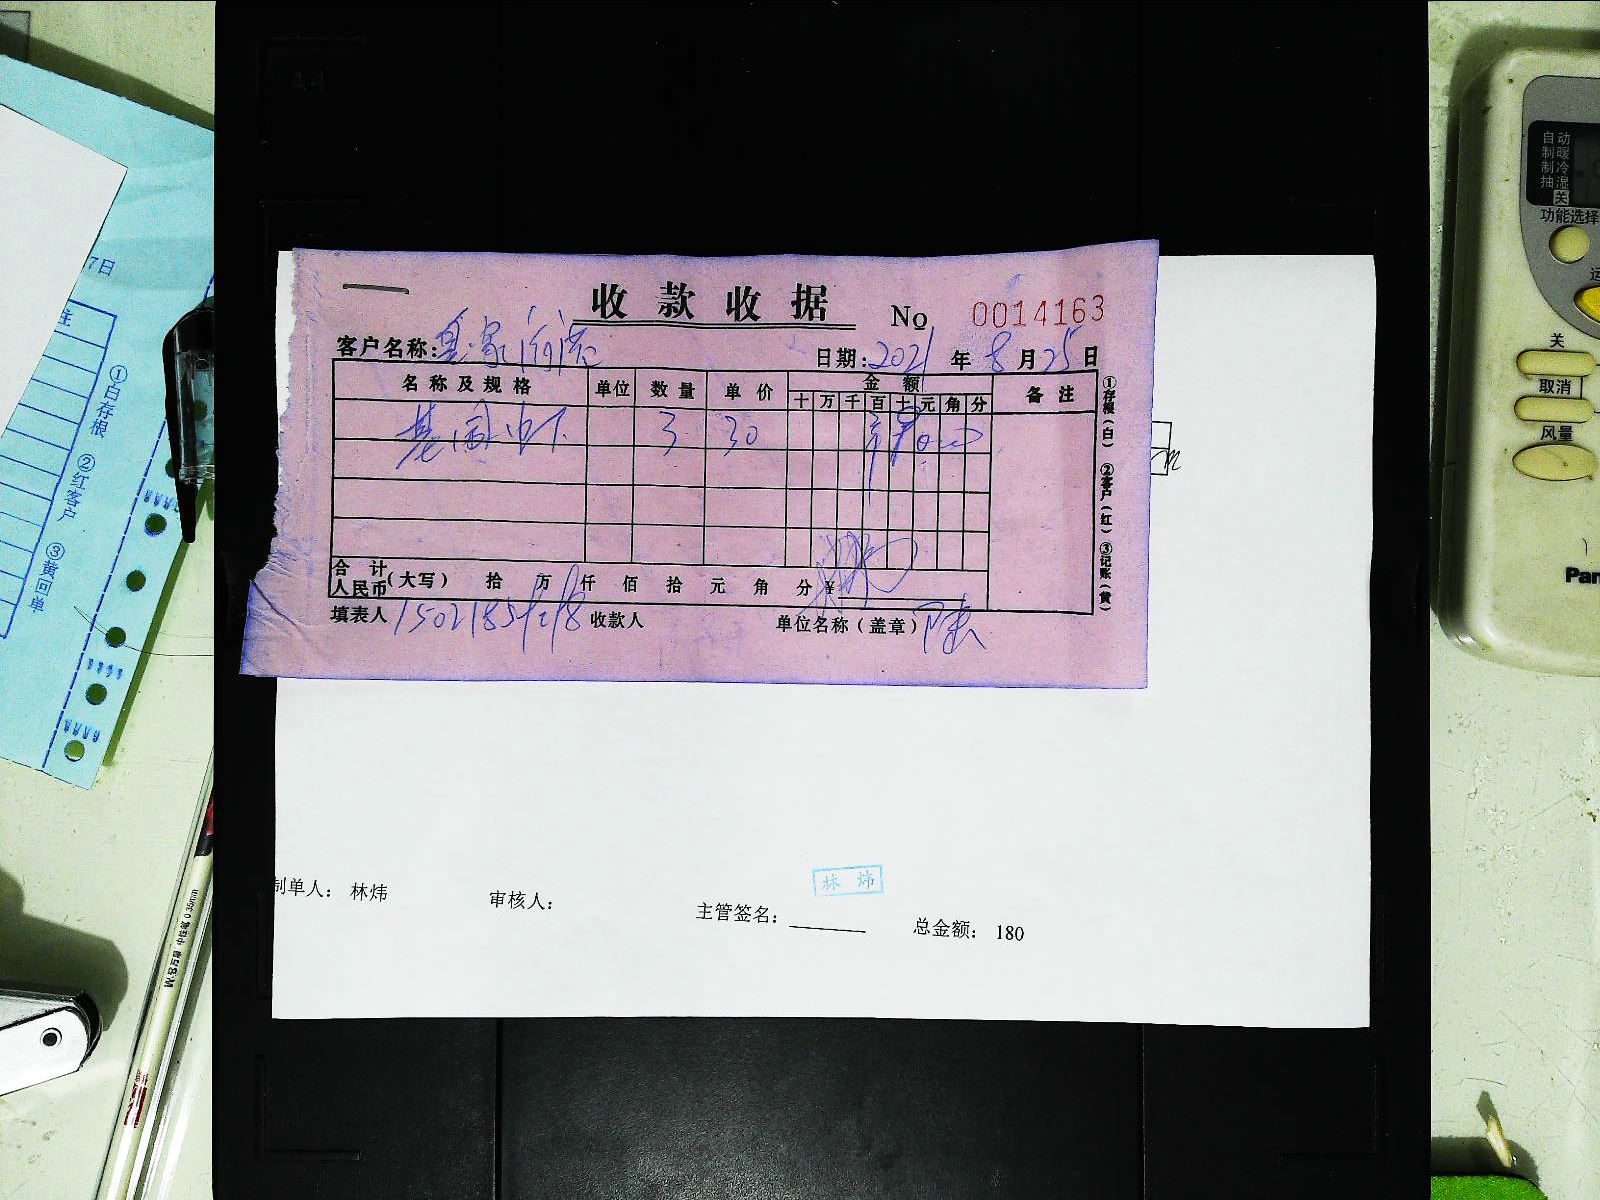 收款收据
No 0014163
客户名称:
日期: 2021 年 8 月 25 日
名称及规格 单位 数量 单价 金额 备注
十 万 千 百 十 元 角 分
基围虾 3 30
合计
人民币(大写) 拾 万 仟 佰 拾 元 角 分 ¥
填表人 收款人 单位名称(盖章)
①存根(白) ②客户(红) ③记账(黄)
制单人: 林炜
审核人:
林 炜
主管签名:
总金额: 180
7日
注
①白存根 ②红客户 ③黄回单
M&G 晨光 中性笔 0.35mm
自动
制暖
制冷
抽湿
关
功能选择
运
关
取消
风量
Pan
A4